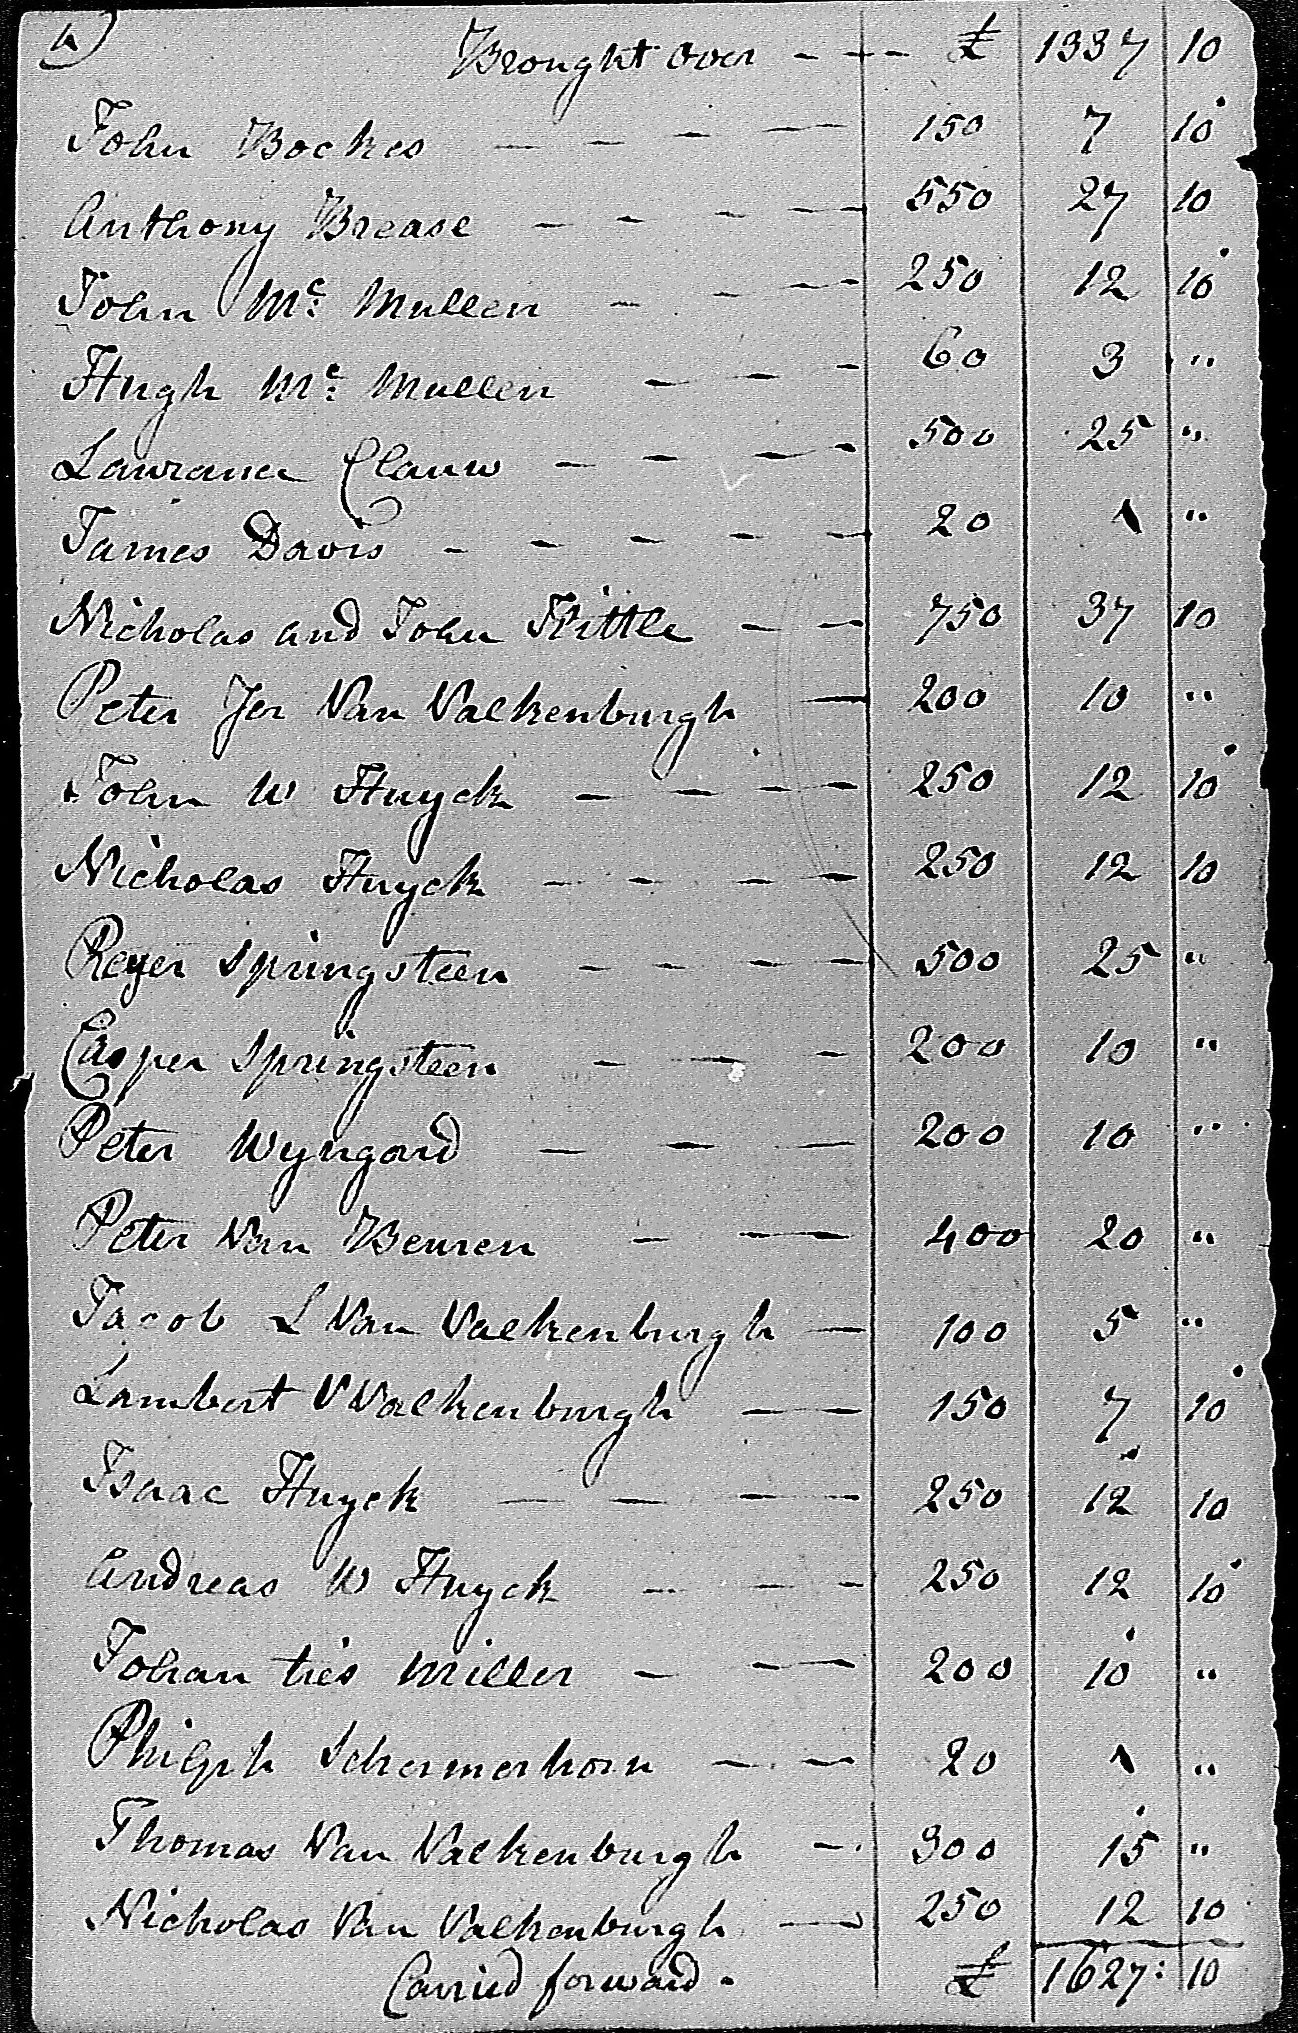 4)
Brought over - - - £ 1337 10
John Bockes - - - - 150 7 10
Anthony Brease - - - - 550 27 10
John Mc: Mullen - - - - 250 12 10
Hugh Mc: Mullen - - - 60 3 "
Lawrance Clauw - - - - 500 25 "
James Davis - - - - - 20 1 "
Nicholas and John Kittle - - 750 37 10
Peter Jer Van Valkenburgh - 200 10 "
John W Huyck - - - - 250 12 10
Nicholas Huyck - - - - 250 12 10
Reyer Springsteen - - - - 500 25 "
Casper Springsteen - - - 200 10 "
Peter Wyngard - - - 200 10 "
Peter Van Beuren - - - 400 20 "
Jacob L Van Valkenburgh - 100 5 "
Lambert V Valkenburgh - - 150 7 10
Isaac Huyck - - - - 250 12 10
Andreas W Huyck - - - 250 12 10
Johan ties Miller - - - 200 10 "
Philiph Schermerhorn - - 20 1 "
Thomas Van Valkenburgh - 300 15 "
Nicholas Van Valkenburgh - 250 12 10
Carried forward - £ 1627: 10